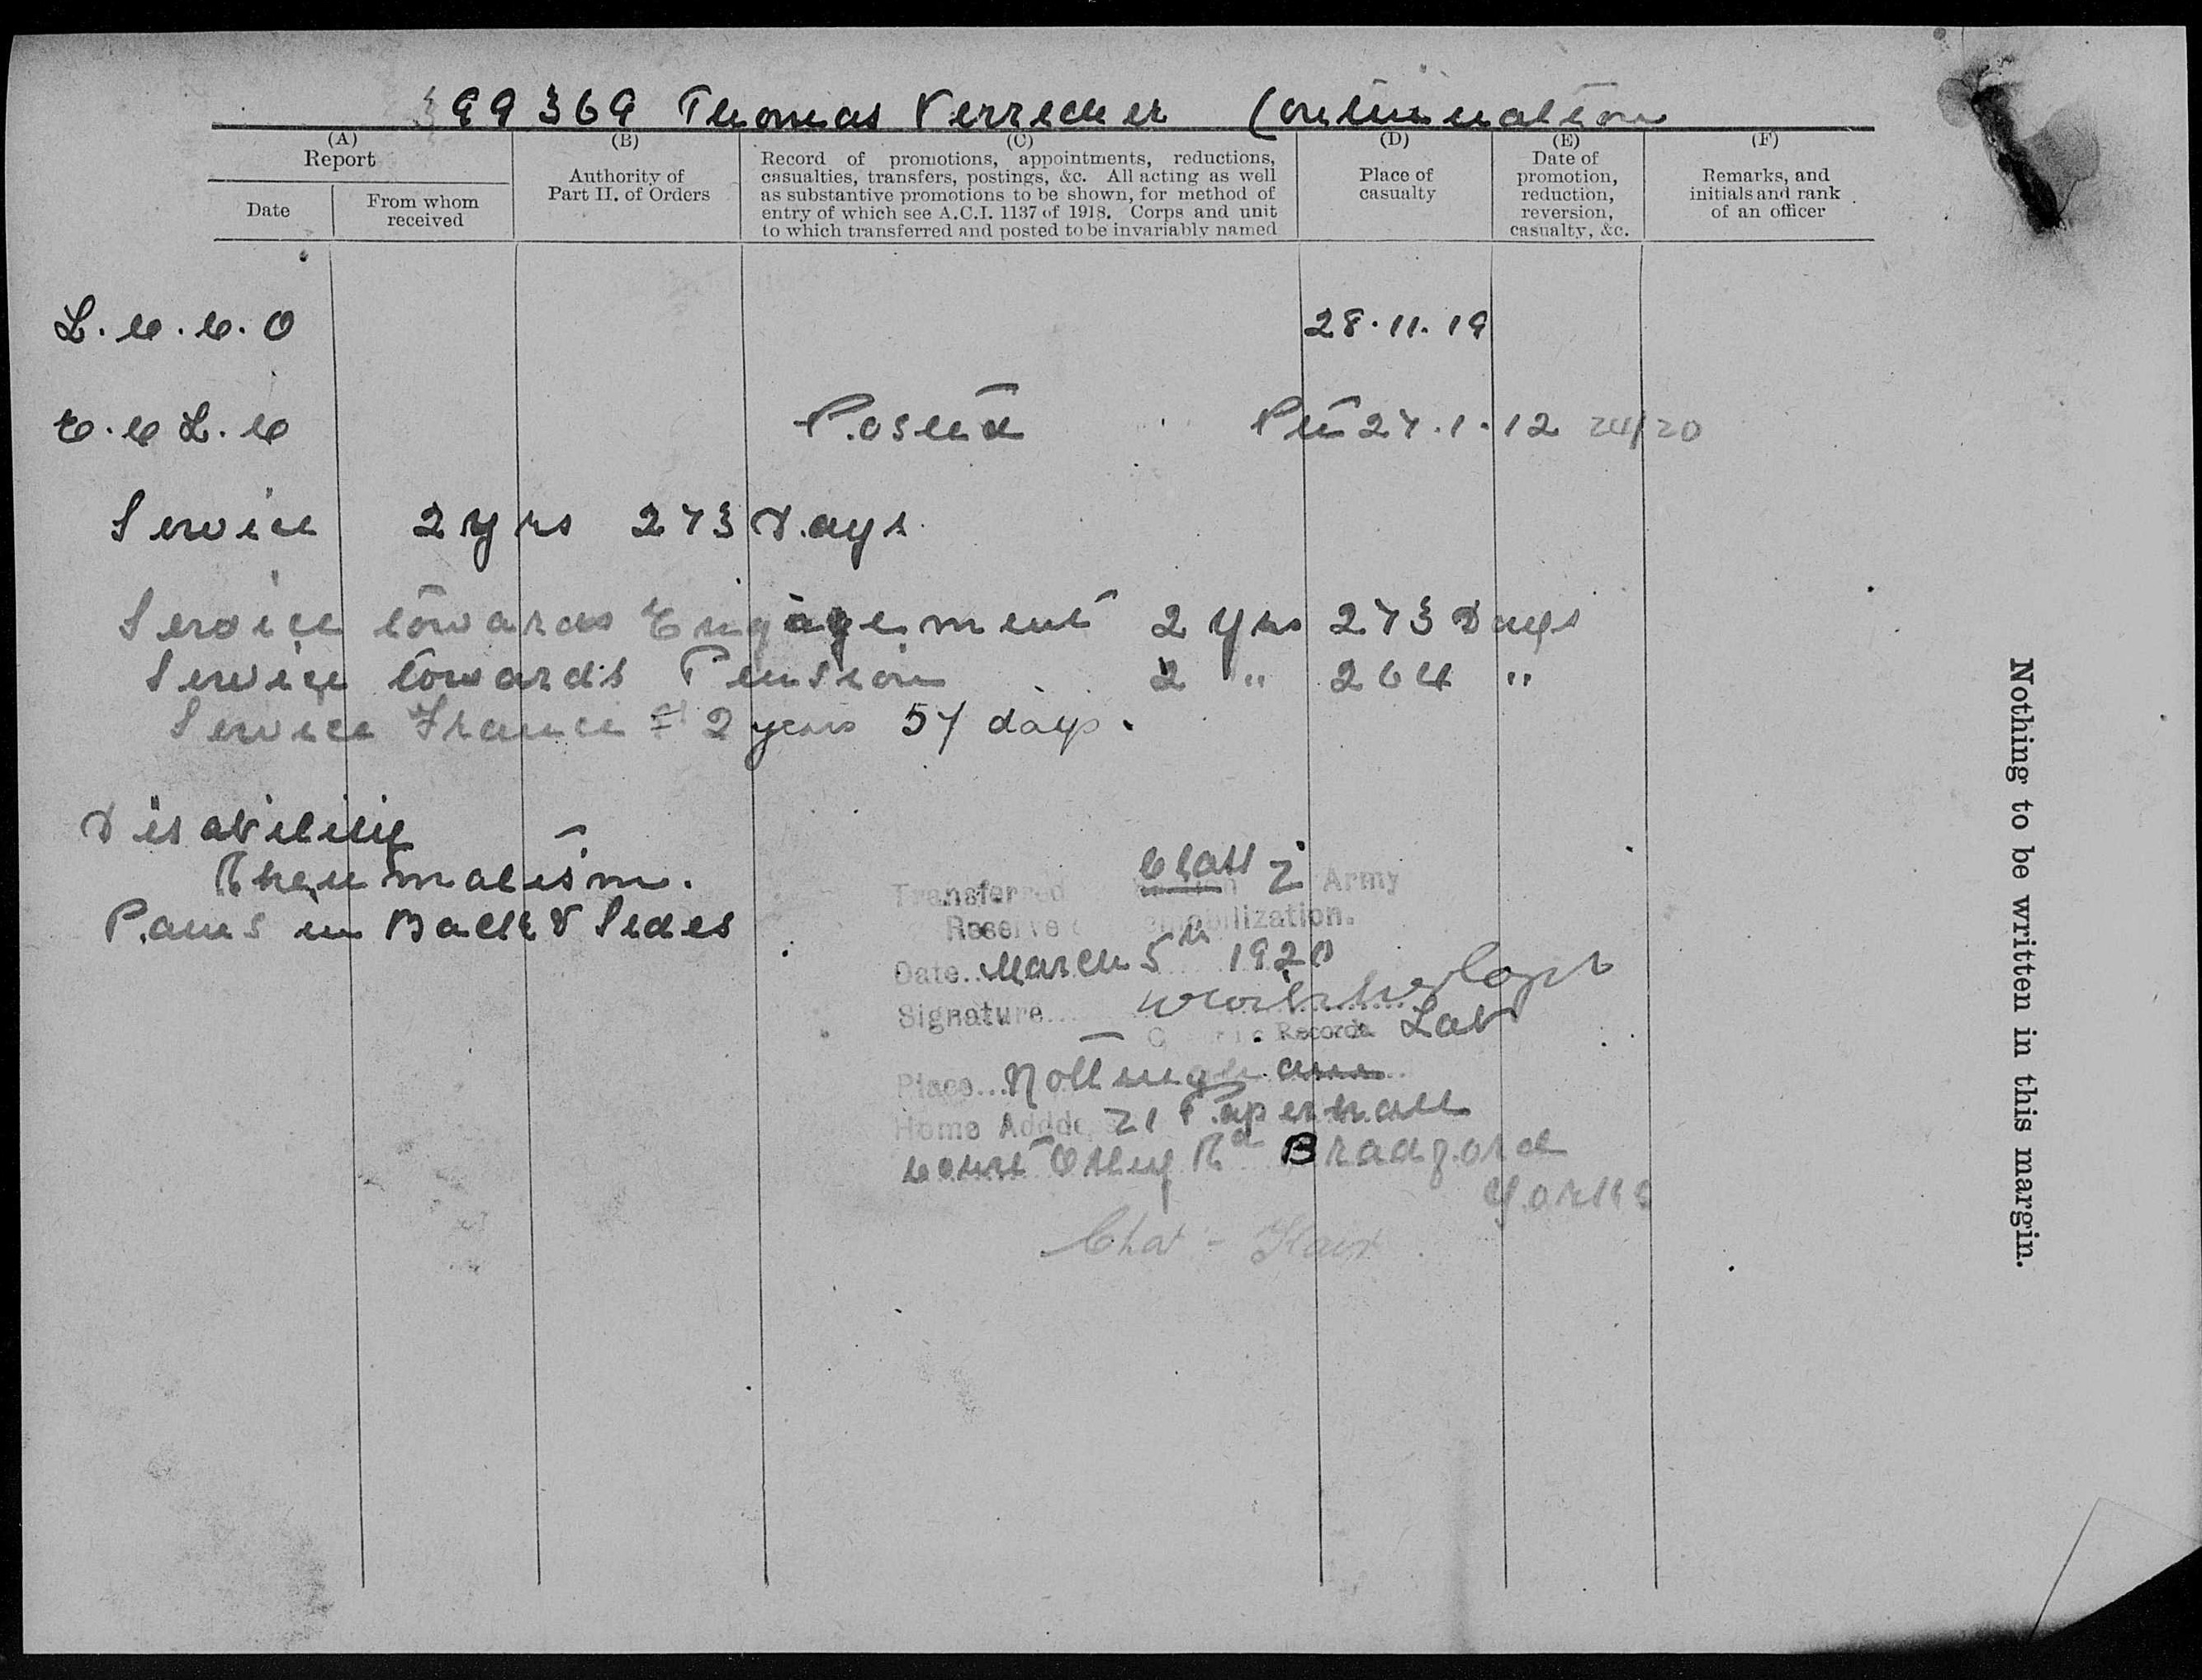 399369 Thomas Verrecher Continuation
(A) (B) (C) (D) (E) (F)
Report
Date
From whom
received
Authority of
Part II. of Orders
Record of promotions, appointments, reductions,
casualties, transfers, postings, &c. All acting as well
as substantive promotions to be shown, for method of
entry of which see A.C.I. 1137 of 1918. Corps and unit
to which transferred and posted to be invariably named
Place of
casualty
Date of
promotion,
reduction,
reversion,
casualty, &c.
Remarks, and
initials and rank
of an officer
L.C.C.O 28.11.19
C.C L.C Posted Pte 27.1.12
Service 2 yrs 273 Days
Service towards Engagement 2 yrs 273 Days
Service towards Pension 2 " 264 "
Service France = 2 years 57 days.
Disability
Rheumatism.
Pains in Back & Sides
Class Z
Transferred Army
Reserve Demobilization.
Date March 5th 1920
Signature Capt
Records Lab
Place Nottingham
Home Addde 21 Paperhall
Court Otley Rd Bradford
Yorks
Nothing to be written in this margin.